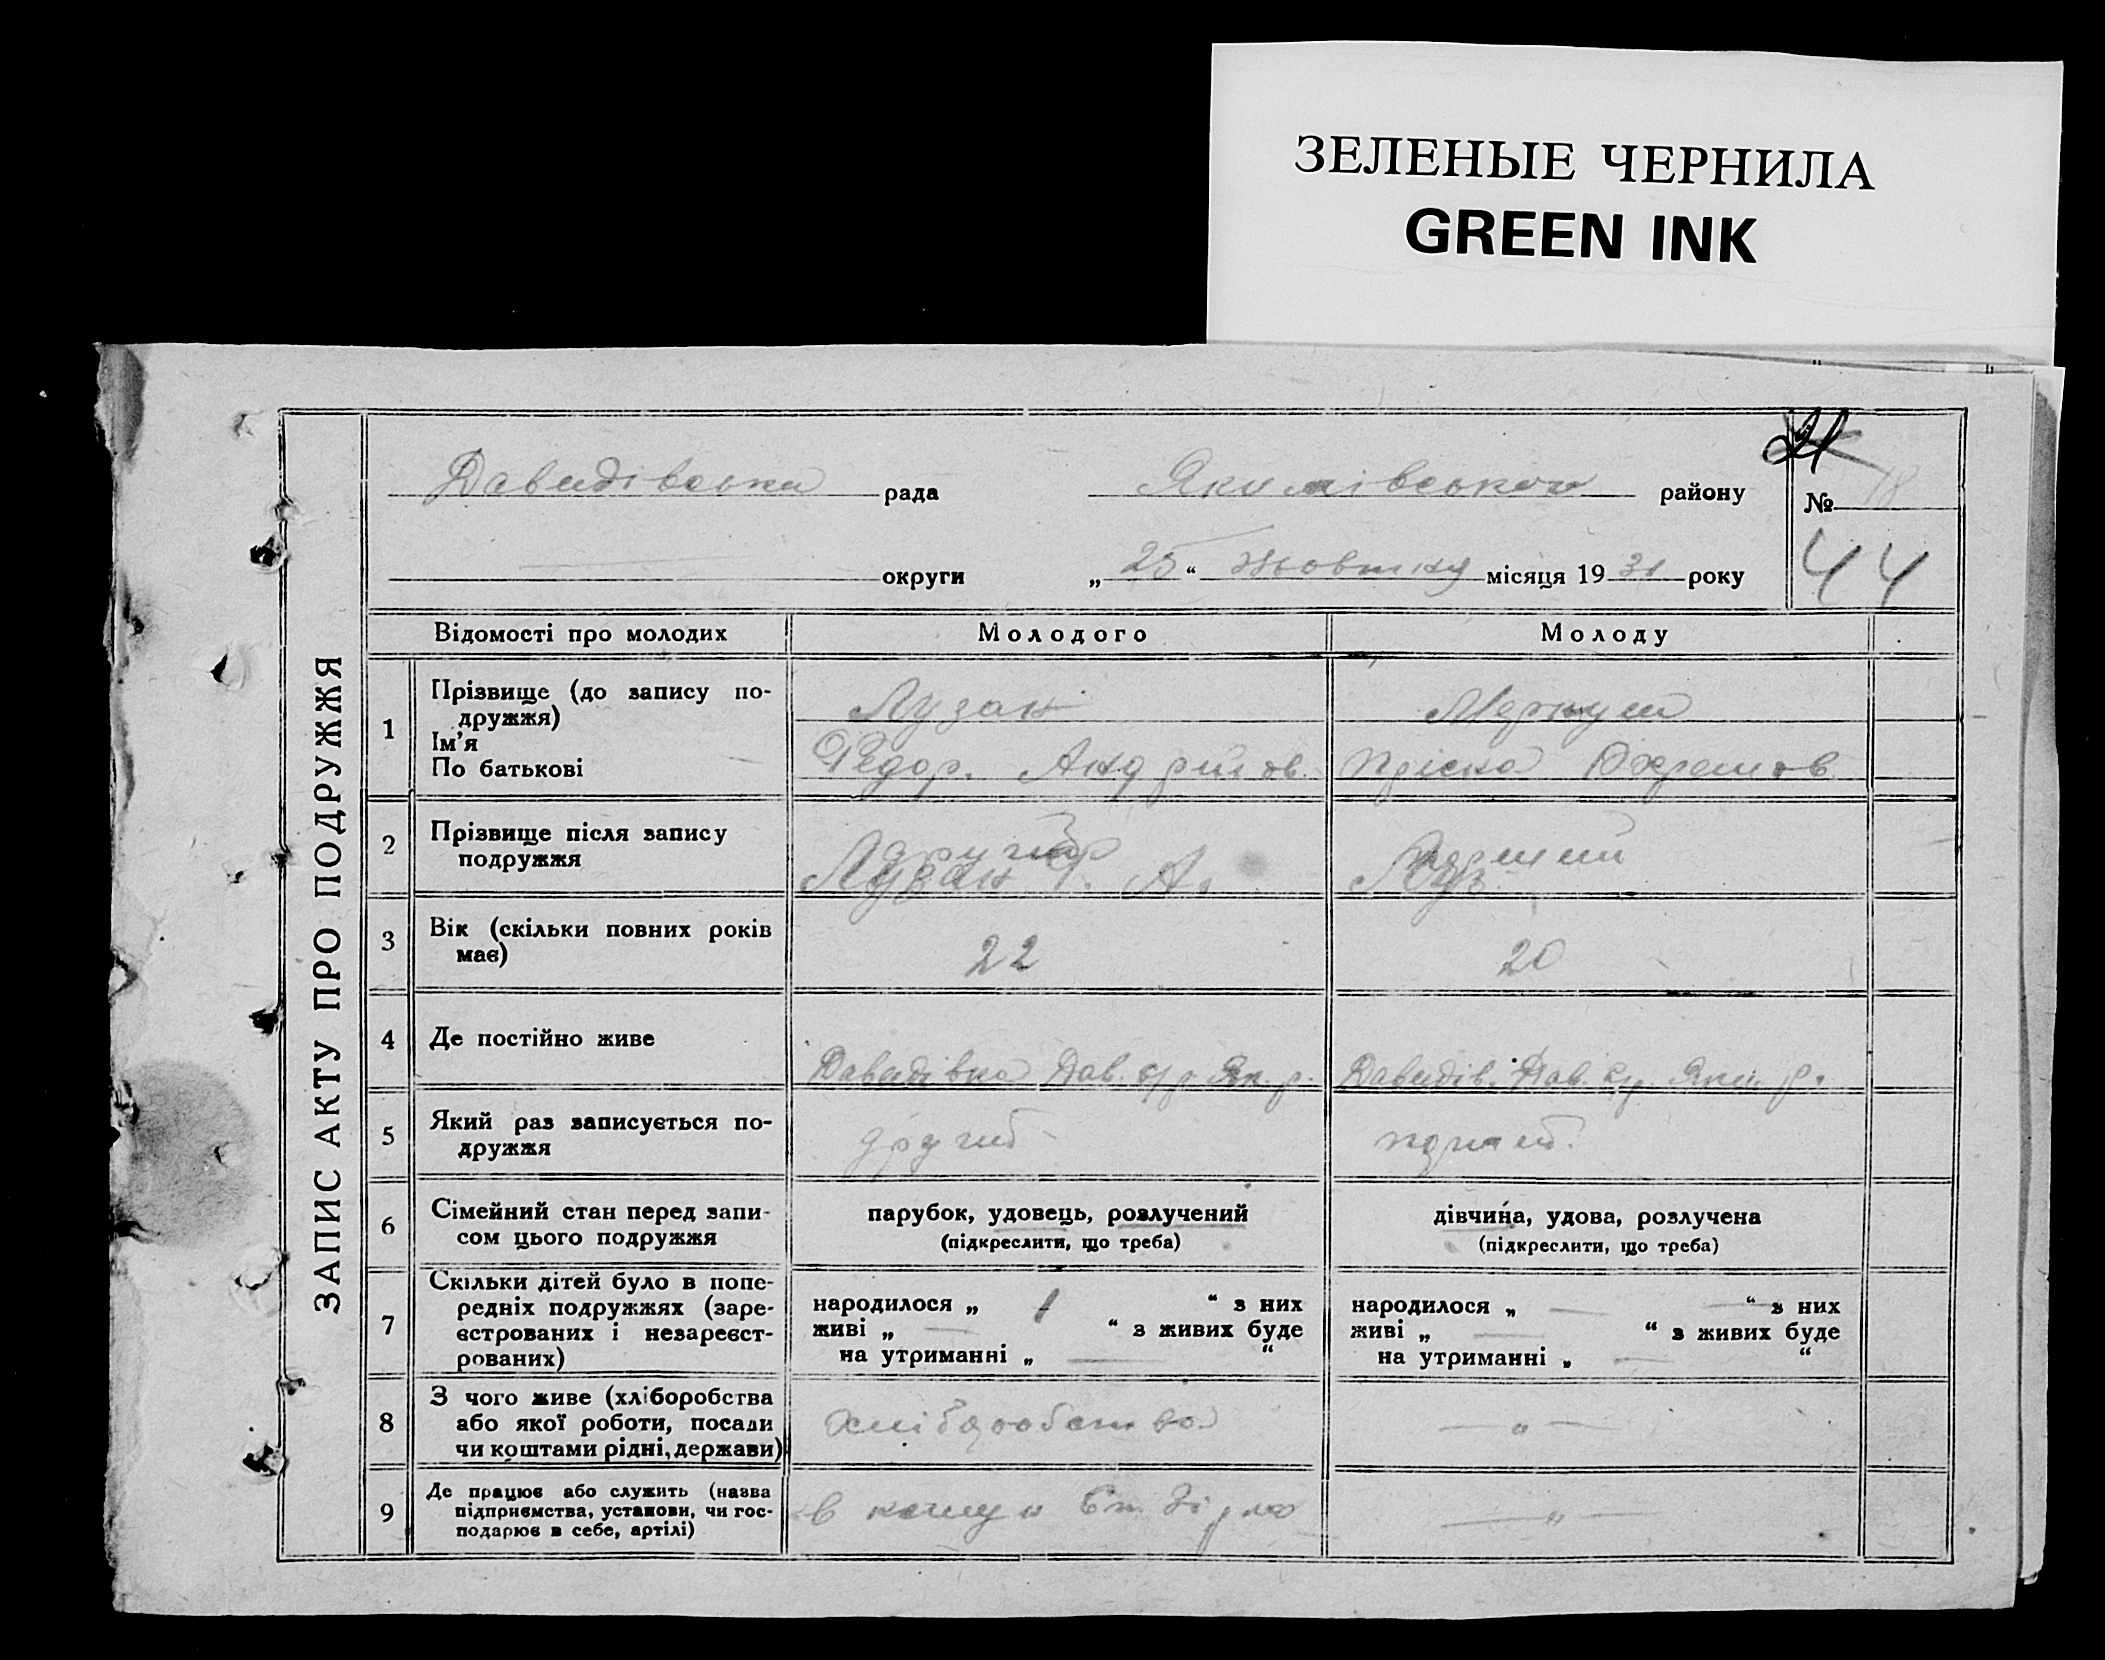 ЗЕЛЕНЫЕ ЧЕРНИЛА
GREEN INK
ЗАПИС АКТУ ПРО ПОДРУЖЖЯ
Давидівська рада Якимівського району
21
№ 18
округи „ 25 “ Жовтня місяця 19 31 року
44
Відомості про молодих Молодого Молоду
1 Прізвище (до запису по-
дружжя)
Ім’я
По батькові
Лузан
Федор. Андріїов.
Пріска
2 Прізвище після запису
подружжя
другий
Лузан Ф. А.
перший
Луз.
3 Вік (скільки повних років
має)
22 20
4 Де постійно живе
Давидівка Дав. с/р Як. р. Давидів. Дав. с/р. Яким. р.
5 Який раз записується по-
дружжя
другий перший.
6 Сімейний стан перед запи-
сом цього подружжя
парубок, удовець, розлучений
(підкреслити, що треба)
дівчина, удова, розлучена
(підкреслити, що треба)
7 Скільки дітей було в попе-
редніх подружжях (заре-
єстрованих і незареєст-
рованих)
народилося „ 1 “ з них
живі „ — “ з живих буде
на утриманні „ — “
народилося „ — “ з них
живі „ — “ з живих буде
на утриманні „ — “
8 З чого живе (хліборобства
або якої роботи, посади
чи коштами рідні, держави)
хліборобства — „ —
9 Де працює або служить (назва
підприємства, установи, чи гос-
подарює в себе, артілі)
в — „ —